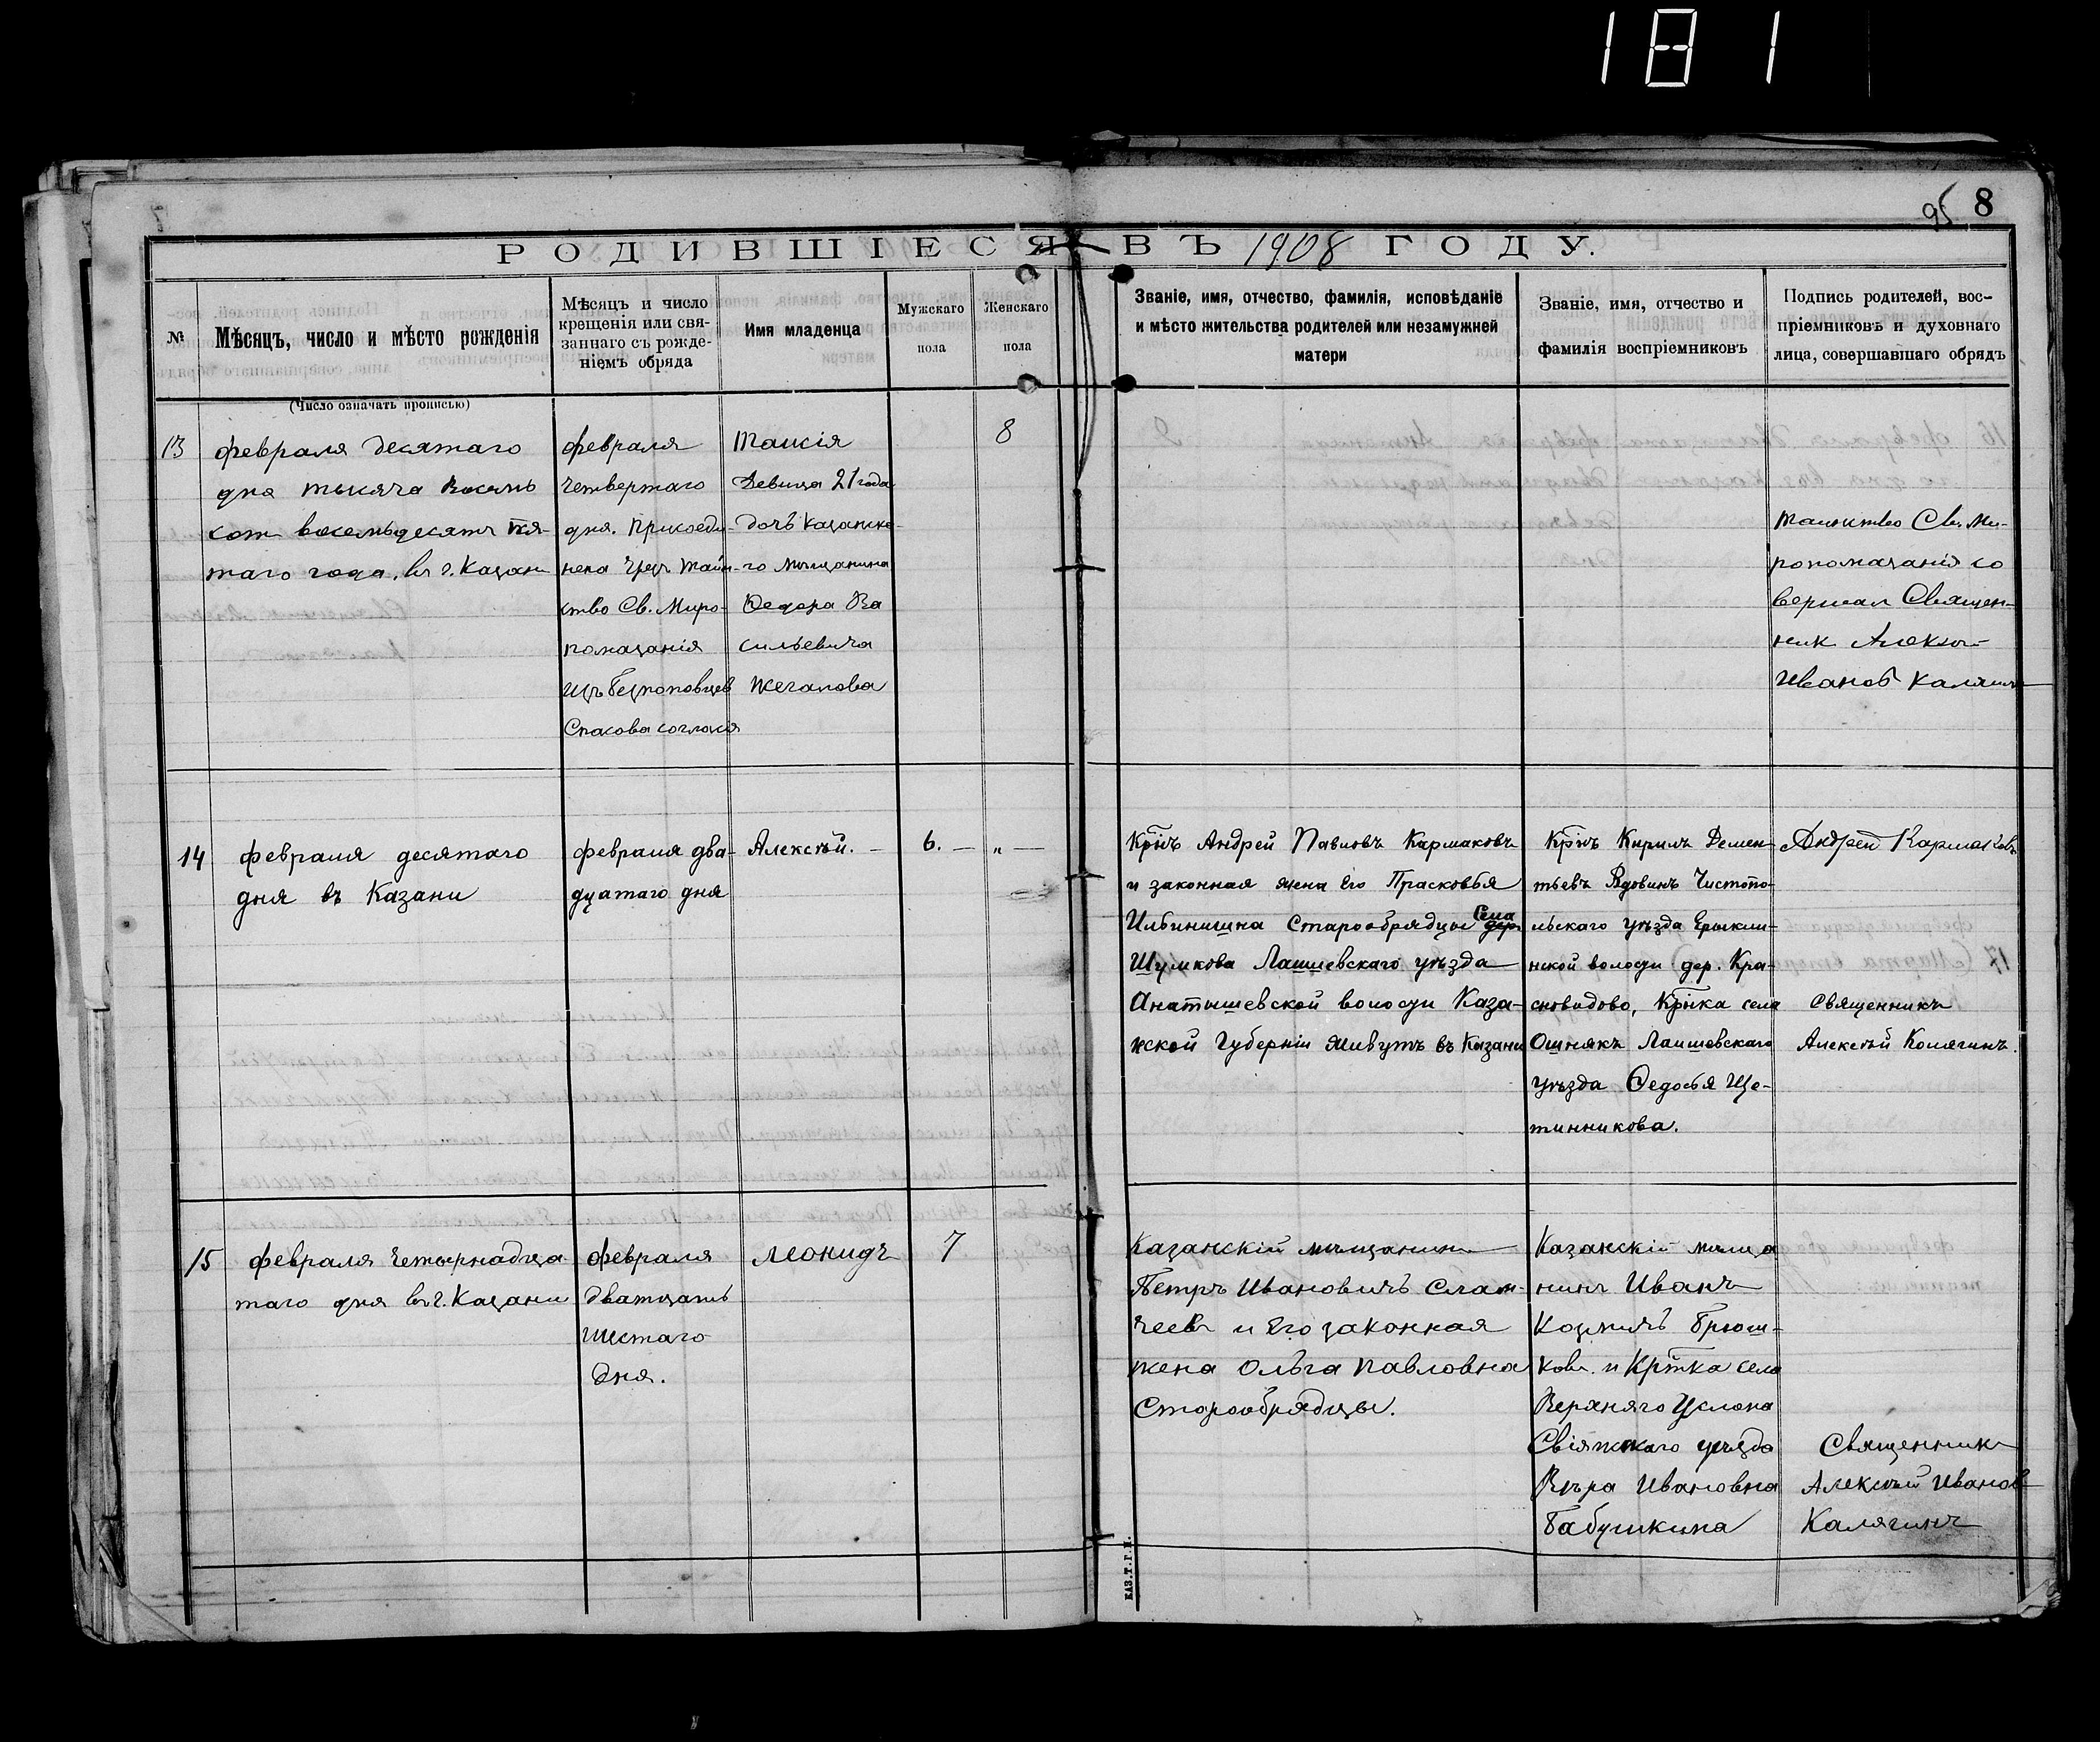 181
95 8
РОДИВШІЕСЯ ВЪ 1908 ГОДУ.
№
Мѣсяцъ, число и мѣсто рожденія
Мѣсяцъ и число
крещенія или свя-
заннаго съ рожде-
ніемъ обряда
Имя младенца
Мужскаго
пола
Женскаго
пола
Званіе, имя, отчество, фамилія, исповѣданіе
и мѣсто жительства родителей или незамужней
матери
Званіе, имя, отчество и
фамилія воспріемниковъ
Подпись родителей, вос-
пріемниковъ и духовнаго
лица, совершавшаго обрядъ
(Число означать прописью)
13
февраля десятаго
дня тысяча восемь
сот восемьдесятъ пя-
таго года. въ г. Казан
февраля
четвертаго
дня. присоеди-
нена чрез таин-
ство Св. Миро-
помазанія
изъ безпоповцев
Спасова согласія
Таисія
Девица 21 года
дочь казанска-
го мещанина
Ѳедора Ва
сильевича
Жегалова
8
таинство Св. Ми-
ропомазанія со
вершал Священ-
ник Алексей
Иванов Калягин
14
февраля десятаго
дня въ Казани
февраля два-
дцатаго дня
Алексѣй. —
6. —
„ —
Крнъ Андрей Павловъ Кармаковъ
и законная жена его Прасковья
Ильинишна Старообрядцы дер. Села
Шумкова Лаишевскаго уѣзда
Анатышевской волости Каза-
нской Губерніи живутъ въ Казани
Крнъ Кирилъ Демен-
тьевъ Вдовинъ Чистопо-
льскаго уѣзда Ерыкли-
нской волости дер. Кра-
сновидово, Крнка села
Ошнякъ Лаишевскаго
уѣзда Ѳедосья Ще-
тинникова.
Андрей Кармаковъ
Священникъ
Алексѣй Колягинъ.
15
февраля четырнадца
таго дня въ г. Казани
февраля
дватцать
шестаго
дня.
Леонидъ
7
Казанскій мѣщанинъ
Петръ Ивановичъ Слат-
чеевъ и его законная
жена Ольга Павловна
Старообрядцы.
Казанскій мѣща
нинъ Иванъ
Козмичъ Брюш-
ковъ. и Кртка села
Верхняго Услона
Свіяжскаго уѣзда
Вѣра Ивановна
Бабушкина
Священникъ
Алексѣй Иванов
Калягинъ
КАЗ.Т.Г.П.